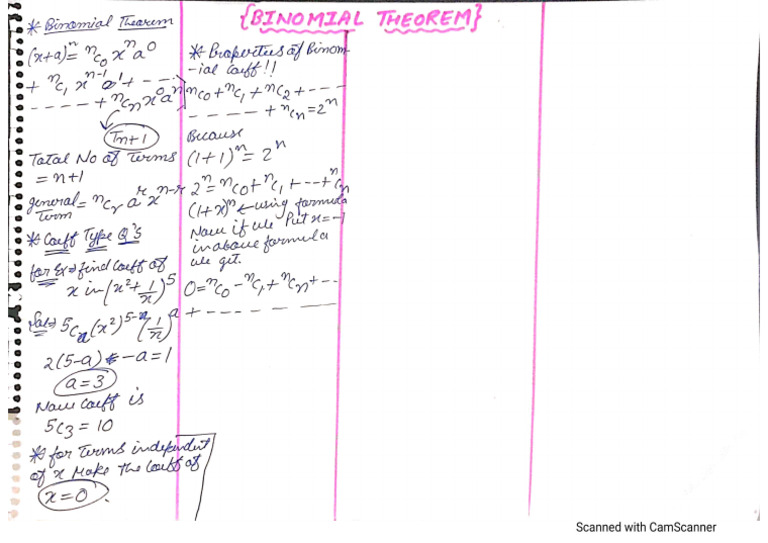 {BINOMIAL THEOREM}
* Binomial Theorem
(x+a)ⁿ = ⁿC₀ xⁿa⁰
+ ⁿC₁ xⁿ⁻¹ a¹ + ----
----- + ⁿCₙ x⁰aⁿ
Tn+1
Total No of Terms
= n+1
general Term = ⁿCr aʳ xⁿ⁻ʳ
* Coeff Type Q'S
for Ex ⇒ find coeff of
x in (x² + 1/x)⁵
Sol ⇒ 5Ca (x²)⁵⁻ᵃ (1/x)ᵃ
2(5-a) -a = 1
a = 3
Now coeff is
5C3 = 10
* for Terms independent
of x Make the coeff of
x = 0.
* Properties of Binom-
-ial coeff!!
ⁿC₀ + ⁿC₁ + ⁿC₂ + ----
----- + ⁿCₙ = 2ⁿ
Because
(1+1)ⁿ = 2ⁿ
2ⁿ = ⁿC₀ + ⁿC₁ + --- + ⁿCₙ
(1+x)ⁿ ← using formula
Now if we Put x = -1
in above formula
we get.
0 = ⁿC₀ - ⁿC₁ + ⁿCₙ + ---
+ ---- - ----
Scanned with CamScanner